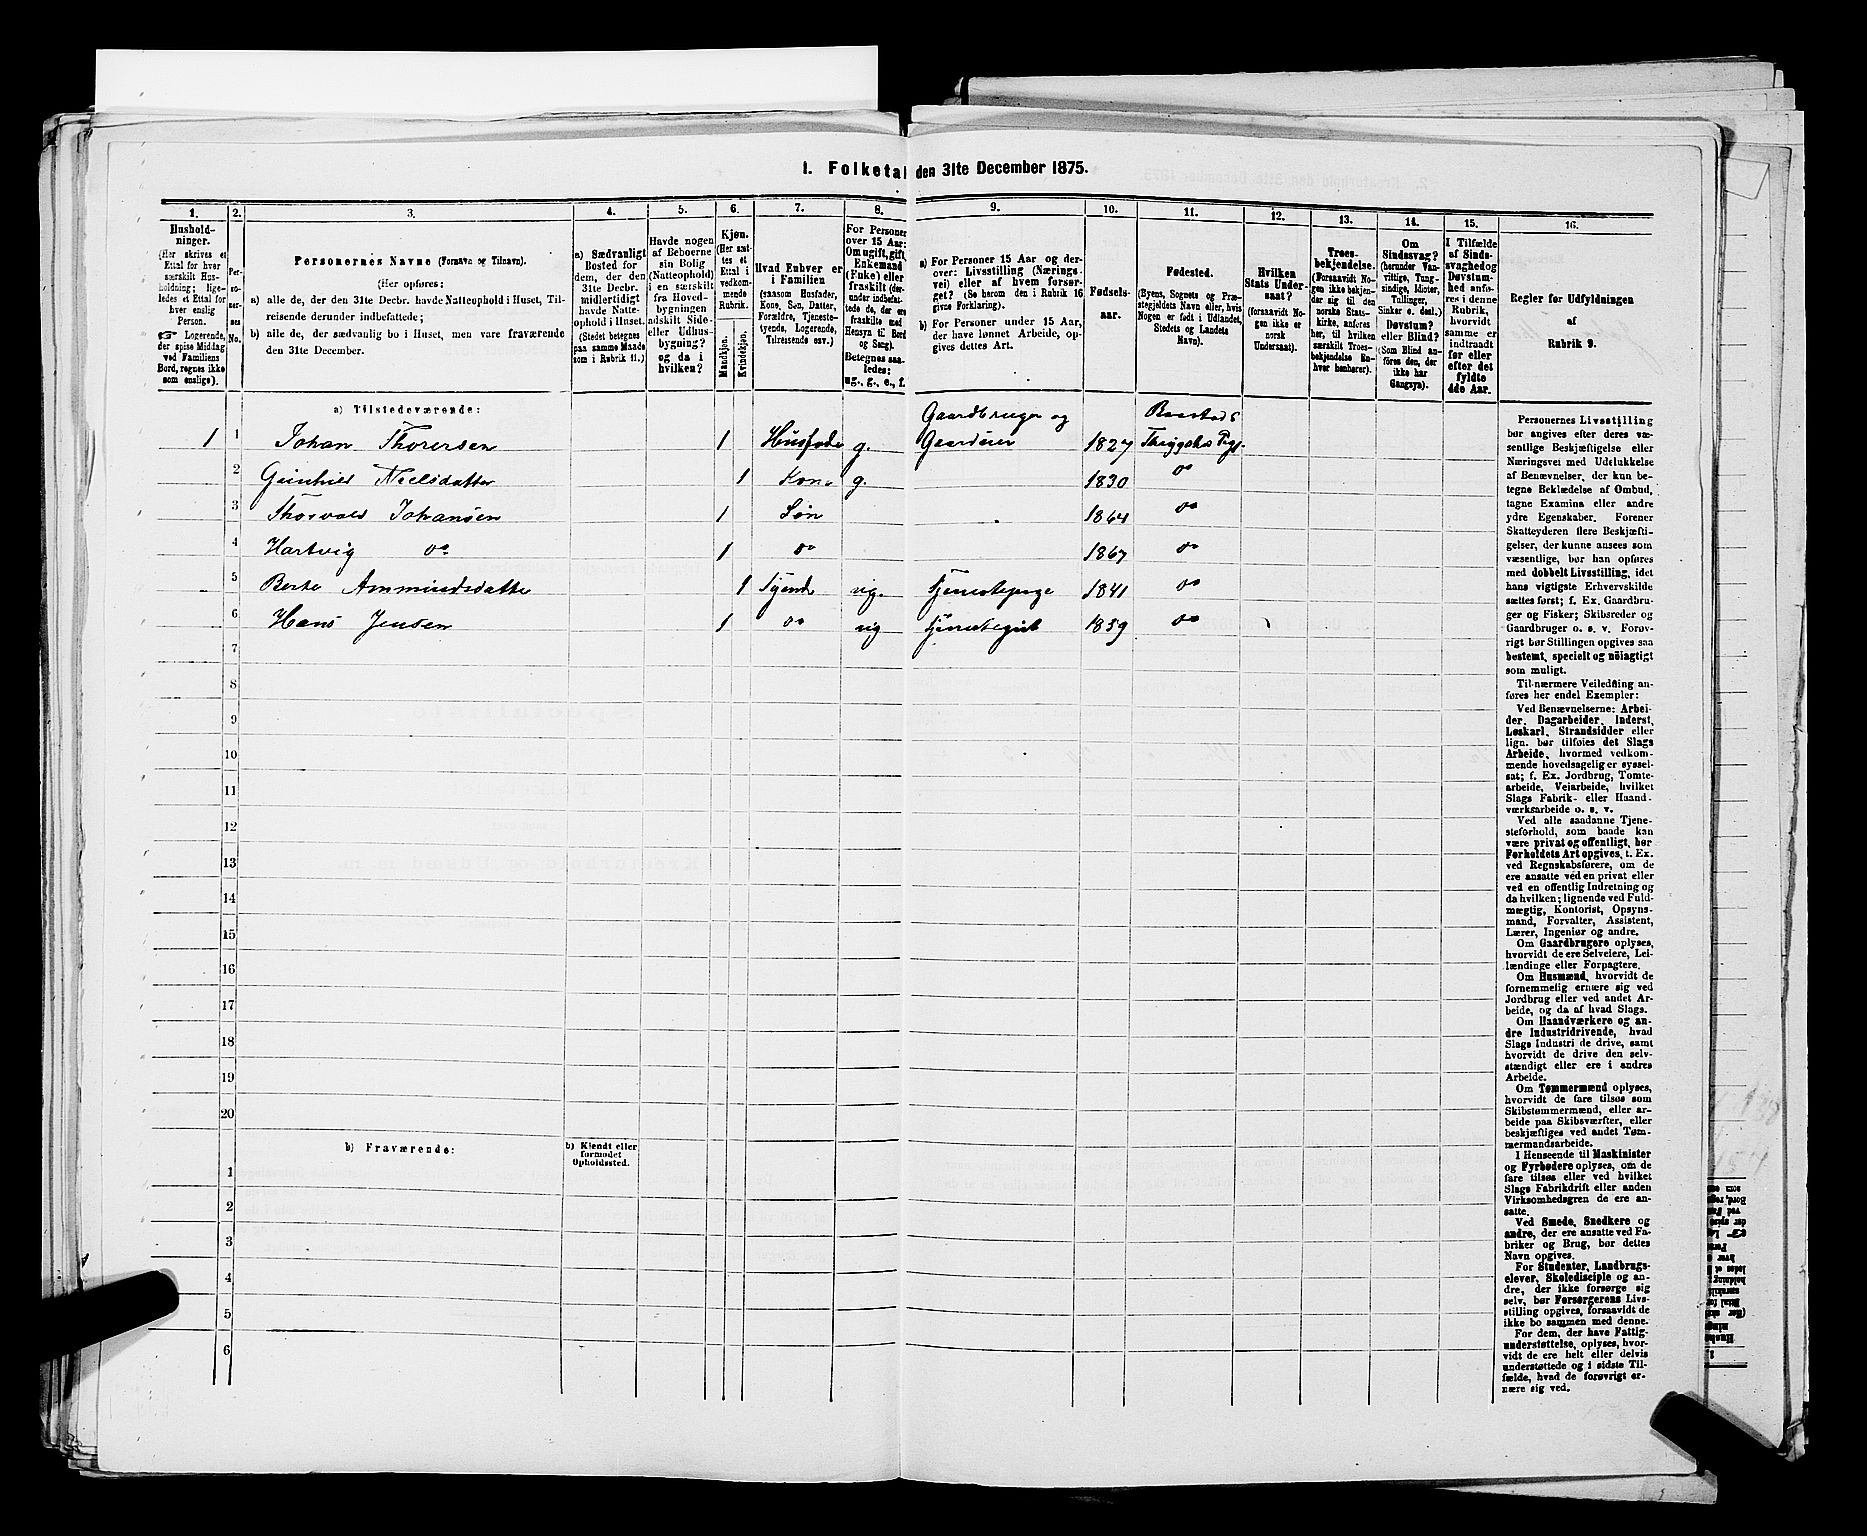 1. Folketal den 31te December 1875.
1. 2. 3. 4. 5. 6. 7. 8. 9. 10. 11. 12. 13. 14. 15. 16.
Hushold-
ninger.
(Her skrives et
Ettal for hver
særskilt Hus-
holdning; lige-
ledes et Ettal for
hver enslig
Person.
Logerende,
der spise Middag
ved Familiens
Bord, regnes ikke
som enslige).
Per-
so-
ner-
nes
No.
Personernes Navne (Fornavn og Tilnavn).
(Her opføres:
a) alle de, der den 31te Decbr. havde Natteophold i Huset, Til-
reisende derunder indbefattede;
b) alle de, der sædvanlig bo i Huset, men vare fraværende
den 31te December.
a) Sædvanligt
Bosted for
dem, der den
31te Decbr.
midlertidigt
havde Natte-
ophold i Huset.
(Stedet betegnes
paa samme Maade
som i Rubrik 11.)
Havde nogen
af Beboerne
sin Bolig
(Natteophold)
i en særskilt
fra Hoved-
bygningen
adskilt Side-
eller Udhus-
bygning?
og da i
hvilken?
Kjøn.
(Her sæt-
tes et
Ettal i
vedkom-
mende
Rubrik.
Mandkjøn.
Kvindekjøn.
Hvad Enhver er
i Familien
(saasom Husfader,
Kone, Søn, Datter,
Forældre, Tjeneste-
tyende, Logerende,
Tilreisende osv.)
For Personer
over 15 Aar:
Om ugift, gift,
Enkemand
(Enke) eller
fraskilt (der-
under indbefat-
tede de, der ere
fraskilte med
Hensyn til Bord
og Seng).
Betegnes saa-
ledes:
ug., g., e., f.
a) For Personer 15 Aar og der-
over: Livsstilling (Nærings-
vei) eller af hvem forsør-
get? (Se herom den i Rubrik 16
givne Forklaring).
b) For Personer under 15 Aar,
der have lønnet Arbeide, op-
gives dettes Art.
Fødsels-
aar.
Fødested.
(Byens, Sognets og Præ-
stegjeldets Navn eller, hvis
Nogen er født i Udlandet,
Stedets og Landets
Navn).
Hvilken
Stats Under-
saat?
(forsaavidt No-
gen ikke er
norsk
Undersaat).
Troes-
bekjendelse.
(Forsaavidt No-
gen ikke bekjen-
der sig til den
norske Stats-
kirke, anføres
her, til hvilken
særskilt Troes-
bekjendelse En-
hver henhører).
Om
Sindssvag?
(herunder Van-
vittige, Tung-
sindige, Idioter,
Tullinger,
Sinker o. desl.)
Døvstum?
eller Blind?
(Som Blind an-
føres den, der
ikke har
Gangsyn).
I Tilfælde
af Sinds-
svaghed og
Døvstum-
hed anfø-
res i denne
Rubrik,
hvorvidt
samme er
indtraadt
før eller
efter det
fyldte
4de Aar.
Regler for Udfyldningen
af
Rubrik 9.
a) Tilstedeværende:
1 1 Johan Thorersen 1 Husfader g. Gaardbruger og Gaardeier 1827
2 Gunhild Nielsdatter 1 Kone g. 1830 do
3 Thorvald Johansen 1 Søn 1864 do
4 Hartvig do 1 do 1867 do
5 Berte Ammundsdatter 1 Tyende ug. Tjenestepige 1841 do
6 Hans Jensen 1 do ug 1859 do
7
8
9
10
11
12
13
14
15
16
17
18
19
20
b) Fraværende:
b) Kjendt eller
formodet
Opholdssted.
1
2
3
4
5
6
Personernes Livsstilling
bør angives efter deres væ-
sentlige Beskjæftigelse eller
Næringsvei med Udelukkelse
af Benævnelser, der kun be-
tegne Beklædelse af Ombud,
tagne Examina eller andre
ydre Egenskaber. Forener
Skatteyderen flere Beskjæfti-
gelser, der kunne ansees som
væsentlige, bør han opføres
med dobbelt Livsstilling, idet
hans vigtigste Erhvervskilde
sættes først; f. Ex. Gaardbru-
ger og Fisker; Skibsreder og
Gaardbruger o. s. v. Forøv-
rigt bør Stillingen opgives saa
bestemt, specielt og nøiagtigt
som muligt.
Til nærmere Veiledning an-
føres her endel Exempler:
Ved Benævnelserne: Arbei-
der, Dagarbeider, Inderst,
Løskarl, Strandsidder eller
lign. bør tilføies det Slags
Arbeide, hvormed vedkom-
mende hovedsagelig er syssel-
sat; f. Ex. Jordbrug, Tomte-
arbeide, Veiarbeide, hvilket
Slags Fabrik- eller Haand-
værksarbeide o. s. v.
Ved alle saadanne Tjene-
steforhold, som baade kan
være privat og offentligt, bør
Forholdets Art opgives, t. Ex.
ved Regnskabsførere, om de
ere ansatte ved en privat eller
ved en offentlig Indretning og
da hvilken; lignende ved Fuld-
mægtig, Kontorist, Opsyns-
mand, Forvalter, Assistent,
Lærer, Ingeniør og andre.
Om Gaardbrugere oplyses,
hvorvidt de ere Selveiere, Lei-
lændinge eller Forpagtere.
Om Husmænd, hvorvidt de
fornemmelig ernære sig ved
Jordbrug eller ved andet Ar-
beide, og da af hvad Slags.
Om Haandværkere og an-
dre Industridrivende, hvad
Slags Industri de drive, samt
hvorvidt de drive den selv-
stændigt eller ere i andres
Arbeide.
Om Tømmermænd oplyses,
hvorvidt de fare tilsøs som
Skibstømmermænd, eller ar-
beide paa Skibsværfter, eller
beskjæftiges ved andet Tøm-
mermandsarbeide.
I Henseende til Maskinister
og Fyrbødere oplyses, om de
fare tilsøs eller ved hvilket
Slags Fabrikdrift eller anden
Virksomhedsgren de ere an-
satte.
Ved Smede, Snedkere og
andre, der ere ansatte ved Fa-
briker og Brug, bør dettes
Navn opgives.
For Studenter, Landbrugs-
elever, Skoledisciple og an-
dre, der ikke forsørge sig
selv, bør Forsørgerens Livs-
stilling opgives, forsaavidt de
ikke bo sammen med denne.
For dem, der have Fattig-
understøttelse, oplyses, hvor-
vidt de ere helt eller delvis
understøttede og i sidste Til-
fælde, hvad de forøvrigt er-
nære sig ved.